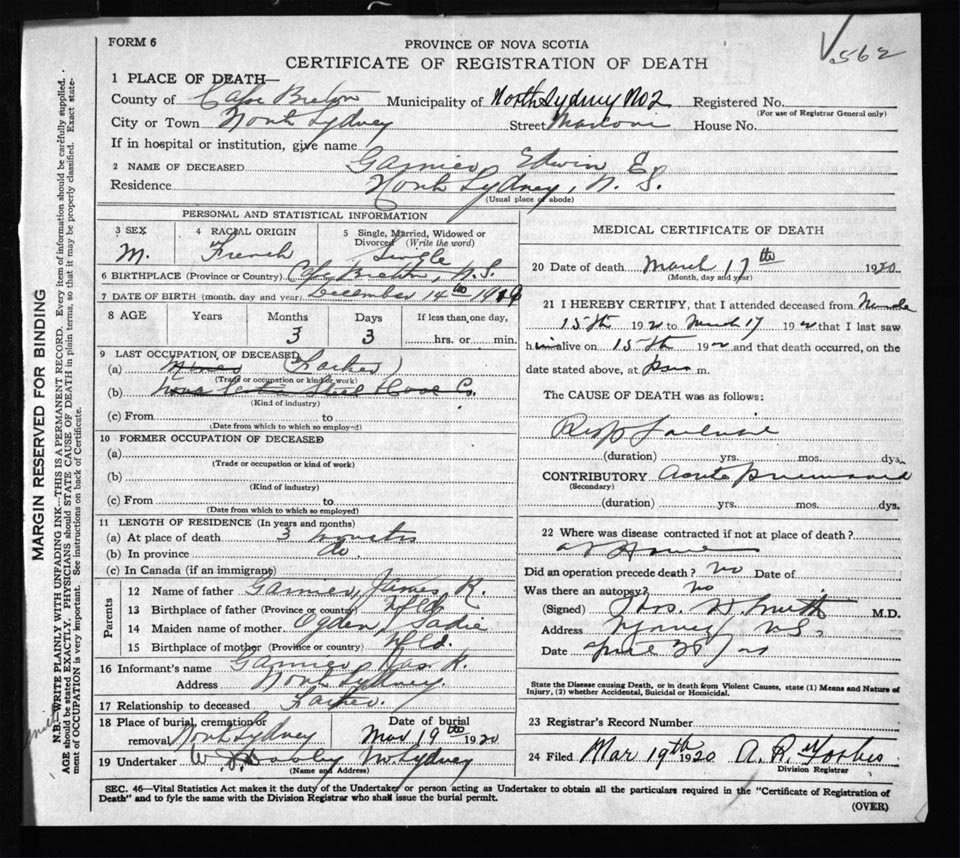 FORM 6
PROVINCE OF NOVA SCOTIA
562
CERTIFICATE OF REGISTRATION OF DEATH
1 PLACE OF DEATH—
County of Cape Breton Municipality of North Sydney No 2 Registered No.
(For use of Registrar General only)
City or Town North Sydney Street House No.
If in hospital or institution, give name
2 NAME OF DECEASED Garnier Edwin E.
Residence North Sydney, N. S.
(Usual place of abode)
PERSONAL AND STATISTICAL INFORMATION
3 SEX
M.
4 RACIAL ORIGIN
French
5 Single, Married, Widowed or Divorced (Write the word)
Single
6 BIRTHPLACE (Province or Country) Cape Breton, N.S.
7 DATE OF BIRTH (month, day and year) December 14th 1919
8 AGE Years Months Days If less than one day,
3 3 hrs. or min.
9 LAST OCCUPATION OF DECEASED
(a) (Father)
(Trade or occupation or kind of work)
(b) Steel Co.
(Kind of industry)
(c) From to
(Date from which to which so employed)
10 FORMER OCCUPATION OF DECEASED
(a)
(Trade or occupation or kind of work)
(b)
(Kind of industry)
(c) From to
(Date from which to which so employed)
11 LENGTH OF RESIDENCE (In years and months)
(a) At place of death 3 months
(b) In province do
(c) In Canada (if an immigrant)
Parents
12 Name of father Garnier, James R.
13 Birthplace of father (Province or country) Nfld
14 Maiden name of mother Ogden, Sadie
15 Birthplace of mother (Province or country) Nfld.
16 Informant's name Garnier, Jas R.
Address North Sydney.
17 Relationship to deceased Father.
18 Place of burial, cremation or removal North Sydney Date of burial Mar 19th 1920
19 Undertaker W. No Sydney
(Name and Address)
MEDICAL CERTIFICATE OF DEATH
20 Date of death March 17th 1920
(Month, day and year)
21 I HEREBY CERTIFY, that I attended deceased from
15th 192 to March 17 192 that I last saw
him alive on 15th 192 and that death occurred, on the
date stated above, at m.
The CAUSE OF DEATH was as follows:
(duration) yrs. mos. dys.
CONTRIBUTORY Acute
(Secondary)
(duration) yrs. mos. dys.
22 Where was disease contracted if not at place of death?
at Home
Did an operation precede death? No Date of
Was there an autopsy? no
(Signed) M.D.
Address N.S.
Date
State the Disease causing Death, or in death from Violent Causes, state (1) Means and Nature of Injury, (2) whether Accidental, Suicidal or Homicidal.
23 Registrar's Record Number
24 Filed Mar 19th 1920 A. R. Forbes
Division Registrar
SEC. 46—Vital Statistics Act makes it the duty of the Undertaker or person acting as Undertaker to obtain all the particulars required in the "Certificate of Registration of
Death" and to fyle the same with the Division Registrar who shall issue the burial permit.
(OVER)
MARGIN RESERVED FOR BINDING
N.B.—WRITE PLAINLY WITH UNFADING INK—THIS IS A PERMANENT RECORD. Every item of information should be carefully supplied.
AGE should be stated EXACTLY. PHYSICIANS should STATE CAUSE OF DEATH in plain terms, so that it may be properly classified. Exact state-
ment of OCCUPATION is very important. See instructions on back of Certificate.